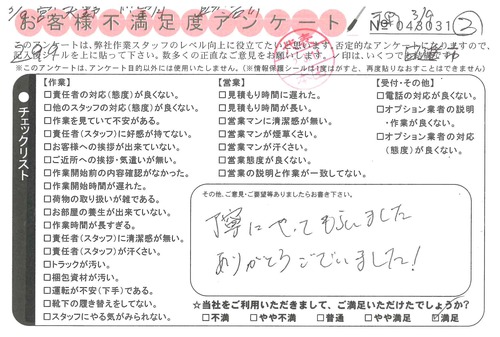 お客様不満足度アンケート
3/9
No 043031
2
このアンケートは、弊社作業スタッフのレベル向上に役立てたいと思います。否定的なアンケートになりますので、
記入後シールを上に貼って下さい。数多くの正直なご意見をお願いします。レ印は、いくつで
※このアンケートは、アンケート目的以外には使用いたしません。(※情報保護シールは1度はがすと、再度貼りなおすことはできません)
チェックリスト
【作業】
□責任者の対応(態度)が良くない。
□他のスタッフの対応(態度)が良くない。
□作業を見ていて不安がある。
□責任者(スタッフ)に好感が持てない。
□お客様への挨拶が出来ていない。
□ご近所への挨拶・気遣いが無い。
□作業開始前の内容確認がなかった。
□作業開始時間が遅れた。
□荷物の取り扱いが雑である。
□お部屋の養生が出来ていない。
□作業時間が長すぎる。
□責任者(スタッフ)に清潔感が無い。
□責任者(スタッフ)が汗くさい。
□トラックが汚い。
□梱包資材が汚い。
□運転が不安(下手)である。
□靴下の履き替えをしてない。
□スタッフにやる気がみられない。
【営業】
□見積もり時間に遅れた。
□見積もり時間が長い。
□営業マンに清潔感が無い。
□営業マンが煙草くさい。
□営業マンが汗くさい。
□営業態度が良くない。
□営業の説明と作業が一致してない。
【受付・その他】
□電話の対応が良くない。
□オプション業者の説明
・作業が良くない。
□オプション業者の対応
(態度)が良くない。
その他、ご意見・ご要望等ありましたらお書き下さい。
丁寧にやってもらいました
ありがとうございました!
☆当社をご利用いただきまして、ご満足いただけたでしょうか?
□不満 □やや不満 □普通 □やや満足 ☑満足